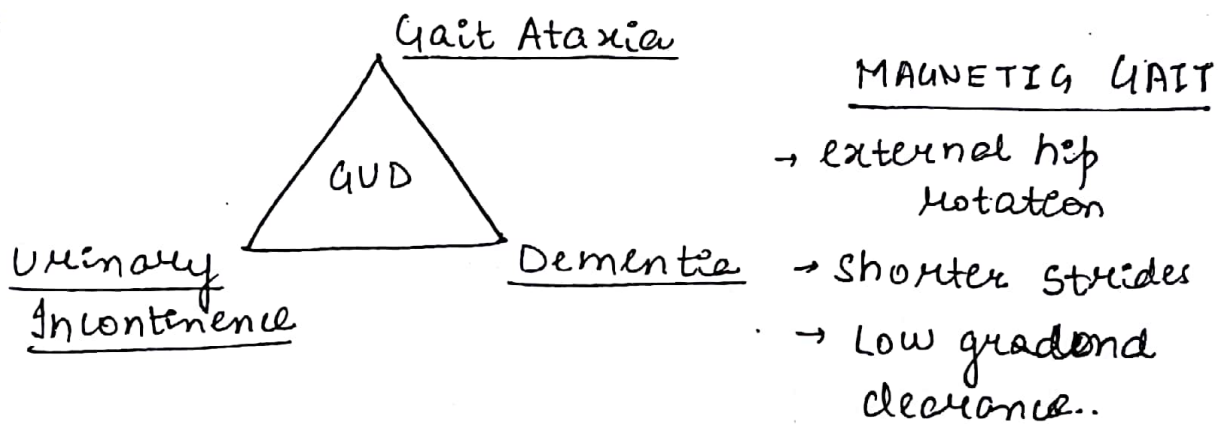 Gait Ataxia
GUD
Urinary
Incontinence
Dementia
MAGNETIG GAIT
→ external hip
rotation
→ Shorter strides
→ Low
clearance..